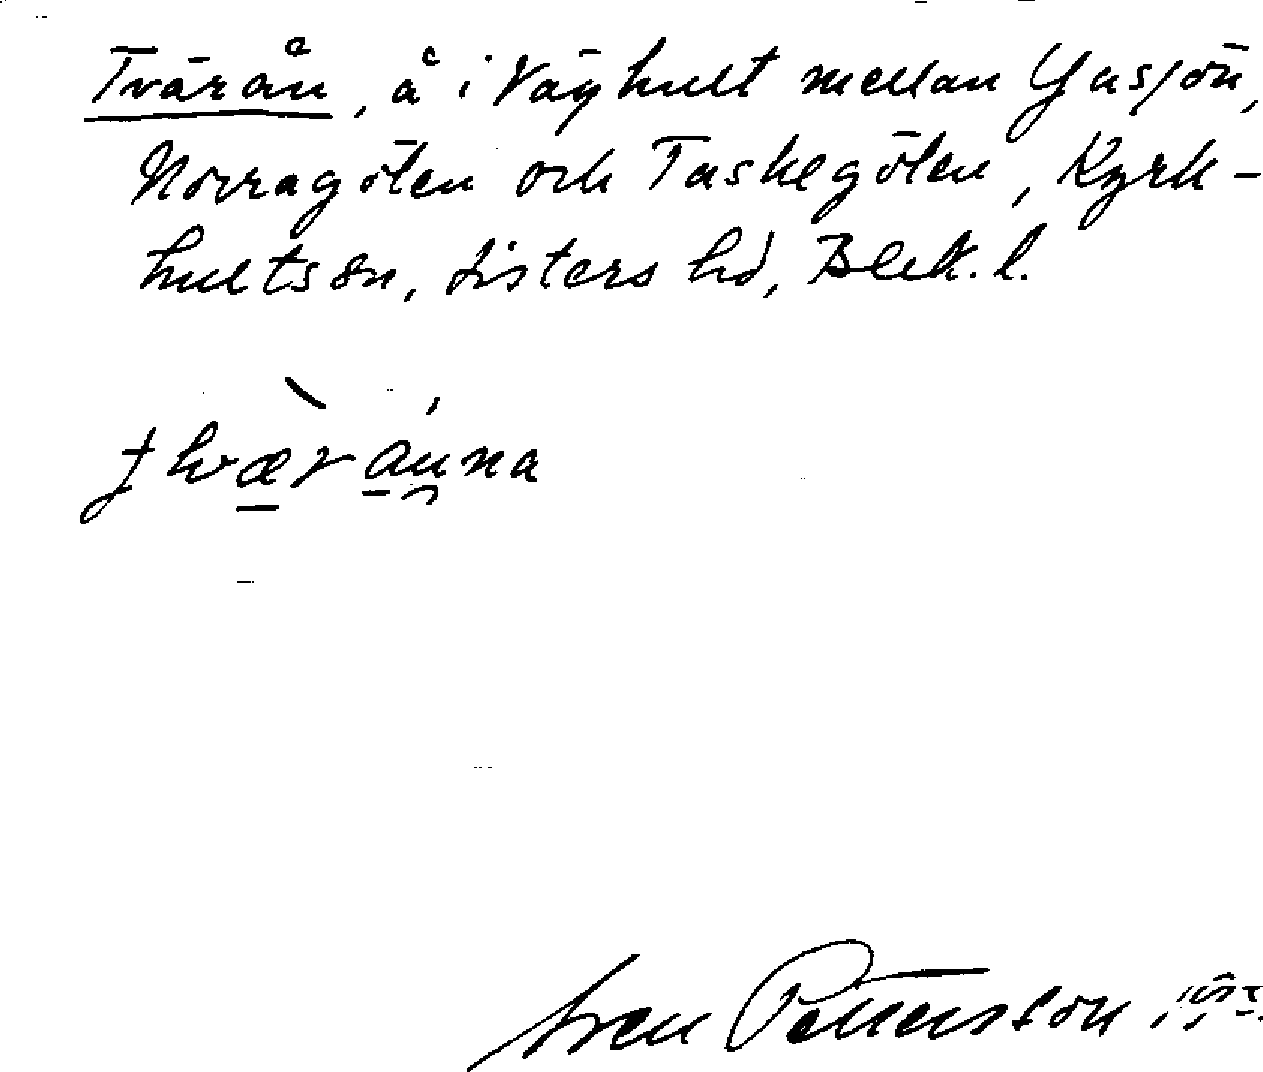 Tvärån, å i Väghult mellan Gäsjön,
Norragölen och Taskegölen, Kyrk-
hults sn, Listers hd, Blek. l.
Sven Pettersson